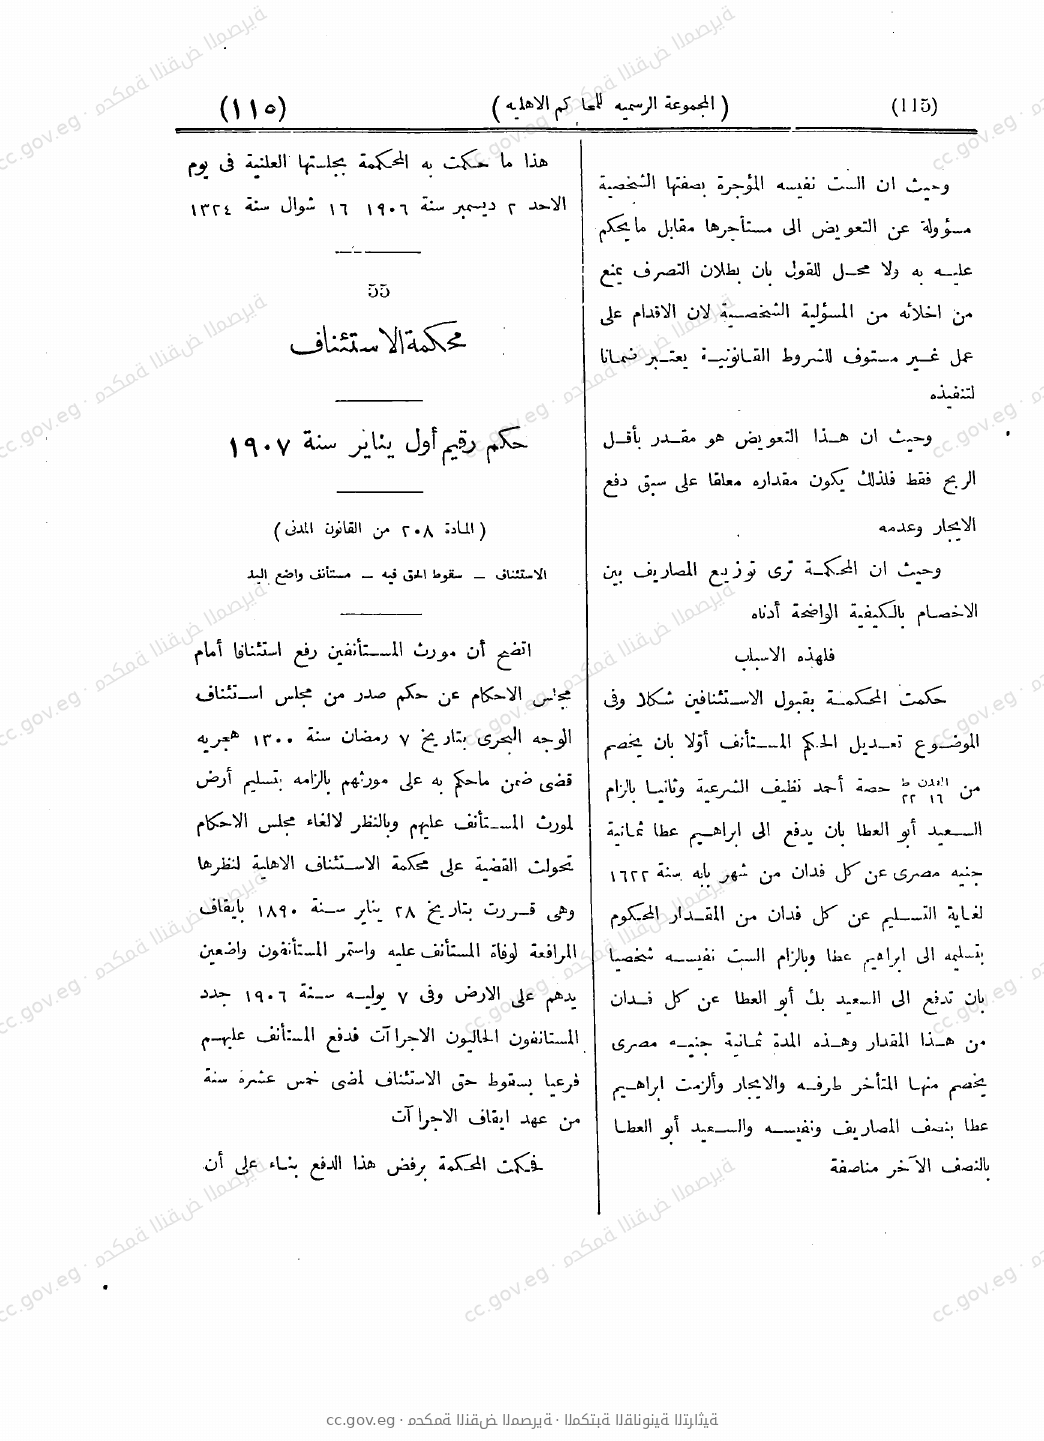 (115) (المجموعة الرسميه للمحاكم الاهليه) (١١٥)
وحيث ان الست نفيسه المؤجرة بصفتها الشخصية
مسؤولة عن التعويض الى مستأجرها مقابل مايحكم
عليه به ولا محل للقول بان بطلان التصرف يمنع
من اخلائه من المسؤلية الشخصية لان الاقدام على
عمل غير مستوف للشروط القانونية يعتبر ضمانا
لتنفيذه
وحيث ان هذا التعويض هو مقدر بأقل
الربح فقط فلذلك يكون مقداره معلقا على سبق دفع
الايجار وعدمه
وحيث ان المحكمة ترى توزيع المصاريف بين
الاخصام بالكيفية الواضحة أدناه
فلهذه الاسباب
حكمت المحكمة بقبول الاستئنافين شكلا وفى
الموضوع تعديل الحكم المستأنف أوّلا بان يخصم
من ط ١٦ ٢٢ حصة أحمد نظيف الشرعية وثانيا بالزام
السعيد أبو العطا بان يدفع الى ابراهيم عطا ثمانية
جنيه مصرى عن كل فدان من شهر بابه سنة ١٦٢٢
لغاية التسليم عن كل فدان من المقدار المحكوم
بتسليمه الى ابراهيم عطا وبالزام الست نفيسه شخصيا
بان تدفع الى السعيد بك أبو العطا عن كل فدان
من هذا المقدار وهذه المدة ثمانية جنيه مصرى
يخصم منها المتأخر طرفه والايجار وألزمت ابراهيم
عطا بنصف المصاريف ونفيسه والسعيد أبو العطا
بالنصف الآخر مناصفة
هذا ما حكمت به المحكمة بجلستها العلنية فى يوم
الاحد ٢ ديسمبر سنة ١٩٠٦ ١٦ شوال سنة ١٣٢٤
55
محكمة الاستئناف
حكم رقيم أول يناير سنة ١٩٠٧
(المادة ٢٠٨ من القانون المدنى)
الاستئناف – سقوط الحق فيه – مستأنف واضع اليد
اتضح أن مورث المستأنفين رفع استئنافا أمام
مجلس الاحكام عن حكم صدر من مجلس استئناف
الوجه البحرى بتاريخ ٧ رمضان سنة ١٣٠٠ هجريه
قضى ضمن ماحكم به على مورثهم بالزامه بتسليم أرض
لمورث المستأنف عليهم وبالنظر لالغاء مجلس الاحكام
تحولت القضية على محكمة الاستئناف الاهلية لنظرها
وهى قررت بتاريخ ٢٨ يناير سنة ١٨٩٠ بايقاف
المرافعة لوفاة المستأنف عليه واستمر المستأنفون واضعين
يدهم على الارض وفى ٧ يوليه سنة ١٩٠٦ جدد
المستانفون الحاليون الاجراآت فدفع المستأنف عليهم
فرعيا بسقوط حق الاستئناف لمضى خمس عشره سنة
من عهد ايقاف الاجراآت
فحكمت المحكمة برفض هذا الدفع بناء على أن
cc.gov.eg · محكمة النقض المصرية · المكتبة القانونية التراثية